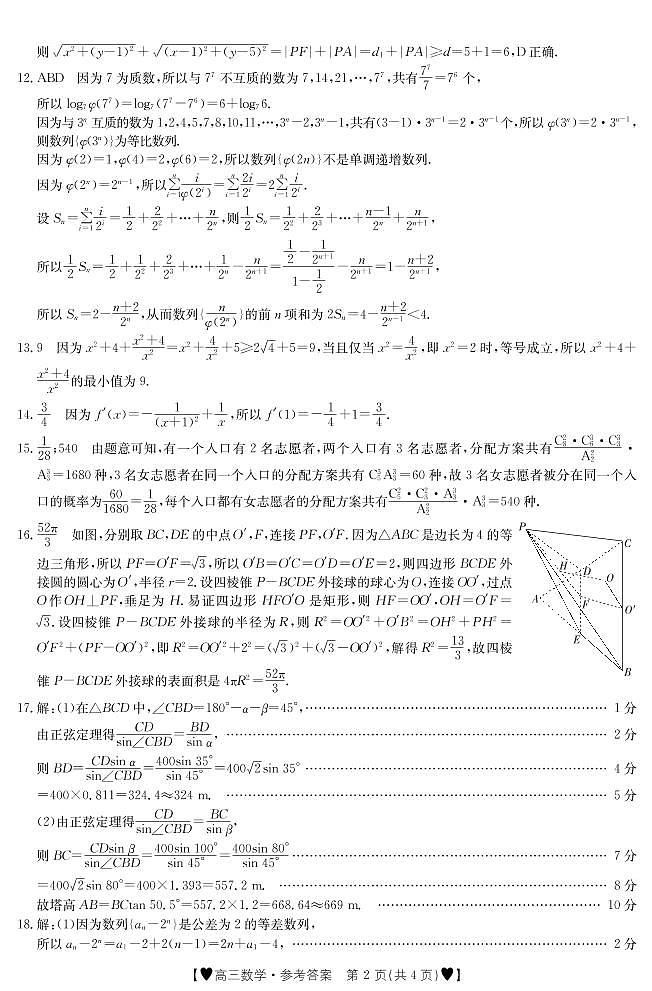 则√(x²+(y−1)²)+√((x−1)²+(y−5)²)=|PF|+|PA|=d₁+|PA|⩾d=5+1=6,D正确.
12. ABD 因为7为质数,所以与7⁷不互质的数为7,14,21,…,7⁷,共有7⁷/7=7⁶个,
所以log₇φ(7⁷)=log₇(7⁷−7⁶)=6+log₇6.
因为与3ⁿ互质的数为1,2,4,5,7,8,10,11,…,3ⁿ−2,3ⁿ−1,共有(3−1)·3ⁿ⁻¹=2·3ⁿ⁻¹个,所以φ(3ⁿ)=2·3ⁿ⁻¹,
则数列{φ(3ⁿ)}为等比数列.
因为φ(2)=1,φ(4)=2,φ(6)=2,所以数列{φ(2n)}不是单调递增数列.
因为φ(2ⁿ)=2ⁿ⁻¹,所以∑ⁿᵢ₌₁ i/φ(2ⁱ)=∑ⁿᵢ₌₁ 2i/2ⁱ=2∑ⁿᵢ₌₁ i/2ⁱ.
设Sₙ=∑ⁿᵢ₌₁ i/2ⁱ=1/2+2/2²+…+n/2ⁿ,则1/2Sₙ=1/2²+2/2³+…+(n−1)/2ⁿ+n/2ⁿ⁺¹,
所以1/2Sₙ=1/2+1/2²+2/2³+…+1/2ⁿ−n/2ⁿ⁺¹=(1/2−1/2ⁿ⁺¹)/(1−1/2)−n/2ⁿ⁺¹=1−(n+2)/2ⁿ⁺¹,
所以Sₙ=2−(n+2)/2ⁿ,从而数列{n/φ(2ⁿ)}的前n项和为2Sₙ=4−(n+2)/2ⁿ⁻¹<4.
13. 9 因为x²+4+(x²+4)/x²=x²+4/x²+5⩾2√4+5=9,当且仅当x²=4/x²,即x²=2时,等号成立,所以x²+4+
(x²+4)/x²的最小值为9.
14. 3/4 因为f′(x)=−1/(x+1)²+1/x,所以f′(1)=−1/4+1=3/4.
15. 1/28;540 由题意可知,有一个入口有2名志愿者,两个入口有3名志愿者,分配方案共有(C²₈·C³₆·C³₃)/A²₂·
A³₃=1680种,3名女志愿者在同一个入口的分配方案共有C²₅A³₃=60种,故3名女志愿者被分在同一个入
口的概率为60/1680=1/28,每个入口都有女志愿者的分配方案共有(C²₅·C²₃·A³₃)/A²₂·A³₃=540种.
16. 52π/3 如图,分别取BC,DE的中点O′,F,连接PF,O′F.因为△ABC是边长为4的等
边三角形,所以PF=O′F=√3,所以O′B=O′C=O′D=O′E=2,则四边形BCDE外
接圆的圆心为O′,半径r=2.设四棱锥P−BCDE外接球的球心为O,连接OO′,过点
O作OH⊥PF,垂足为H.易证四边形HFO′O是矩形,则HF=OO′,OH=O′F=
√3.设四棱锥P−BCDE外接球的半径为R,则R²=OO′²+O′B²=OH²+PH²=
O′F²+(PF−OO′)²,即R²=OO′²+2²=(√3)²+(√3−OO′)²,解得R²=13/3,故四棱
锥P−BCDE外接球的表面积是4πR²=52π/3.
P
C
H
D
O
A
F
O′
E
B
17. 解:(1)在△BCD中,∠CBD=180°−α−β=45°,…… 1分
由正弦定理得CD/sin∠CBD=BD/sin α, …… 2分
则BD=CDsin α/sin∠CBD=400sin 35°/sin 45°=400√2sin 35° …… 4分
=400×0.811=324.4≈324 m. …… 5分
(2)由正弦定理得CD/sin∠CBD=BC/sin β,
则BC=CDsin β/sin∠CBD=400sin 100°/sin 45°=400sin 80°/sin 45° …… 7分
=400√2sin 80°=400×1.393=557.2 m. …… 8分
故塔高AB=BCtan 50.5°=557.2×1.2=668.64≈669 m. …… 10分
18. 解:(1)因为数列{aₙ−2ⁿ}是公差为2的等差数列,
所以aₙ−2ⁿ=a₁−2+2(n−1)=2n+a₁−4, …… 2分
【♥高三数学·参考答案 第2页(共4页)♥】